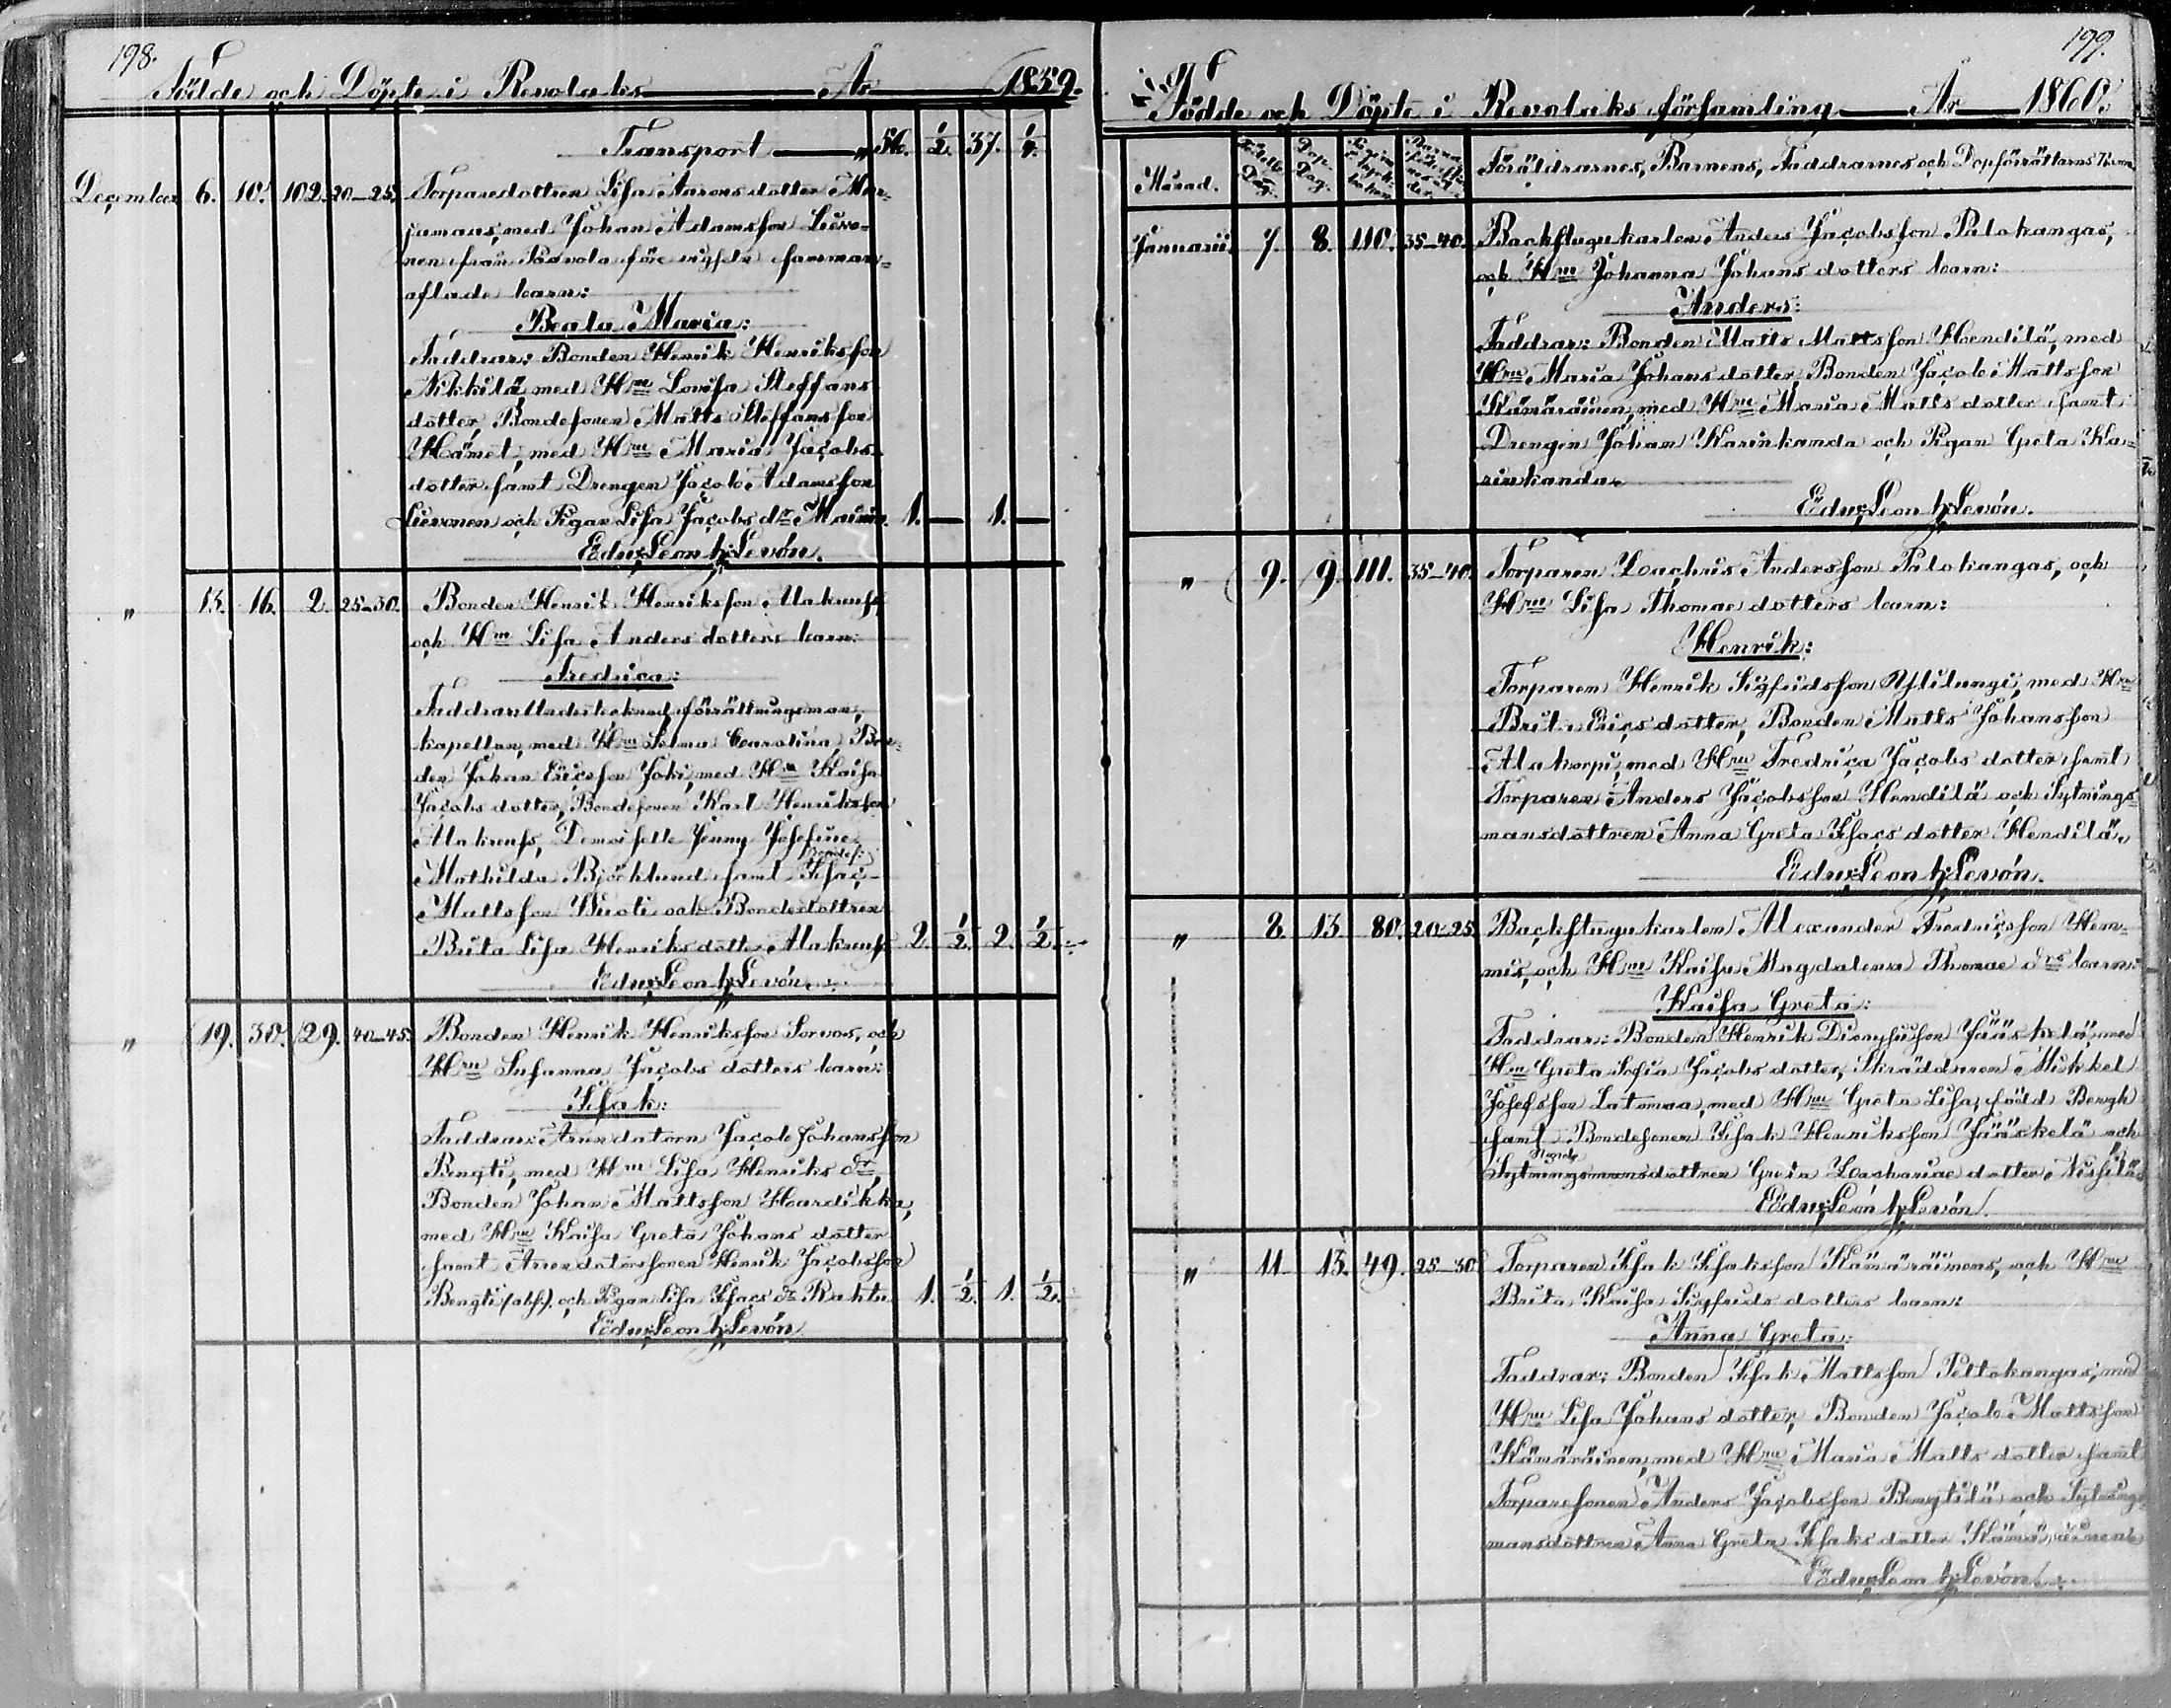 198.
Födde och Döpte i Revolaks År 1859.
Transport „ 56. 1/2. 37. 1/4.
December 6. 10. 102. 20–25. Torparedottren Lisa Aarons dotter
med Johan Adamsson Liero-
nen från Paavola före
aflade barn:
Beata Maria:
Faddrar: Bonden Henrik Henriksson
Nikkilä, med Hru Lovisa Steffans
dotter, Bondesonen Matts Steffansson
med Hru Maria Jacobs
dotter samt Drengen Jacob Adamsson
Lieronen och Pigan Lisa Jacobs dr 1. — 1. —
Edv: Leon h: Levón.
„ 13. 16. 2. 25–30. Bonden Henrik Henriksson Alakreuss
och Hru Lisa Anders dotters barn:
Fredrica:
Faddrar: Undertecknad förrättningsman,
kapellan, med Hru Selma Carolina, Bon-
den Johan Ericsson Joki, med Hru Kaisa
Jacobs dotter, Bondesonen Karl Henriksson
Alakreuss, Demoiselle Jenny Josefine
Mathilda Björklund samt Bondes: Isac
Mattsson Kuoti och Bondedottren
Brita Lisa Henriks dotter Alakreuss 2. 1/2. 2. 1/2.
Edv: Leon h: Levón.
„ 19. 30. 29. 40–45. Bonden Henrik Henriksson Sorvos, och
Hru Susanna Jacobs dotters barn:
Isak:
Faddrar: Arrendatorn Jacob Johansson
Bengti, med Hru Lisa Henriks dr,
Bonden Johan Mattsson Hardikka,
med Hru Kaisa Greta Johans dotter
samt Arrendatorssonen Henrik Jacobsson
Bengti (abs:). och Pigan Lisa Isacs dr Rahtu 1. 1/2. 1. 1/2.
Edv: Leon h: Levón
199.
Födde och Döpte i Revolaks församling År 1860.
Månad. Födelse Dag. Dop Dag. Föräldrarnes, Barnens, Faddrarnes och Dopförrättarens Namn.
Januarii 7. 8. 110. 35–40. Backstugukarlen Anders Jacobsson Palokangas,
och Hru Johanna Johans dotters barn:
Anders:
Faddrar: Bonden Matts Mattsson Hendilä, med
Hru Maria Johans dotter, Bonden Jacob Mattsson
Kämäräinen, med Hru Maria Matts dotter samt
Drengen Johan Karinkanda och Pigan Greta Ka-
rinkanda.
Edv: Leon h: Levón.
„ 9. 9. 111. 35–40. Torparen Zachris Andersson Palokangas, och
Hru Lisa Thomae dotters barn:
Henrik:
Torparen Henrik Sigfridsson Ylilungi, med Hru
Brita Erics dotter, Bonden Matts Johansson
Alakorpi, med Hru Fredrica Jacobs dotter samt
Torparen Anders Jacobsson Hendilä och Sytnings-
mansdottren Anna Greta Isacs dotter Hendilä.
Edv: Leon h: Levón.
„ 8. 13. 80. 20–25. Backstugukarlen Alexander Fredricsson Hem-
mis, och Hru Kaisa Magdalena Thomae drs barn:
Kaisa Greta:
Faddrar: Bonden Henrik Dionysiisson Jääskelä, med
Hru Greta Sofia Jacobs dotter, Skräddaren Mikkel
Josefsson Latomaa, med Hru Greta Lisa, född Bergh
samt Bondesonen Isak Henriksson Jääskelä och
Sytningsmansdottren Greta Zachariae dotter
Edv: Leon h: Levón.
„ 11. 13. 49. 25–30. Torparen Isak Isaksson Kämäräinens, och Hru
Brita Kaisa Sigfrids dotters barn:
Anna Greta:
Faddrar: Bonden Isak Mattsson Peltokangas, med
Hru Lisa Johans dotter, Bonden Jacob Mattsson
Kämäräinen, med Hru Maria Matts dotter samt
Torparesonen Anders Jacobsson Bengtilä och Sytnings-
mansdottren Anna Greta Isaks dotter Kämäräinen
Edv: Leon h: Levón.